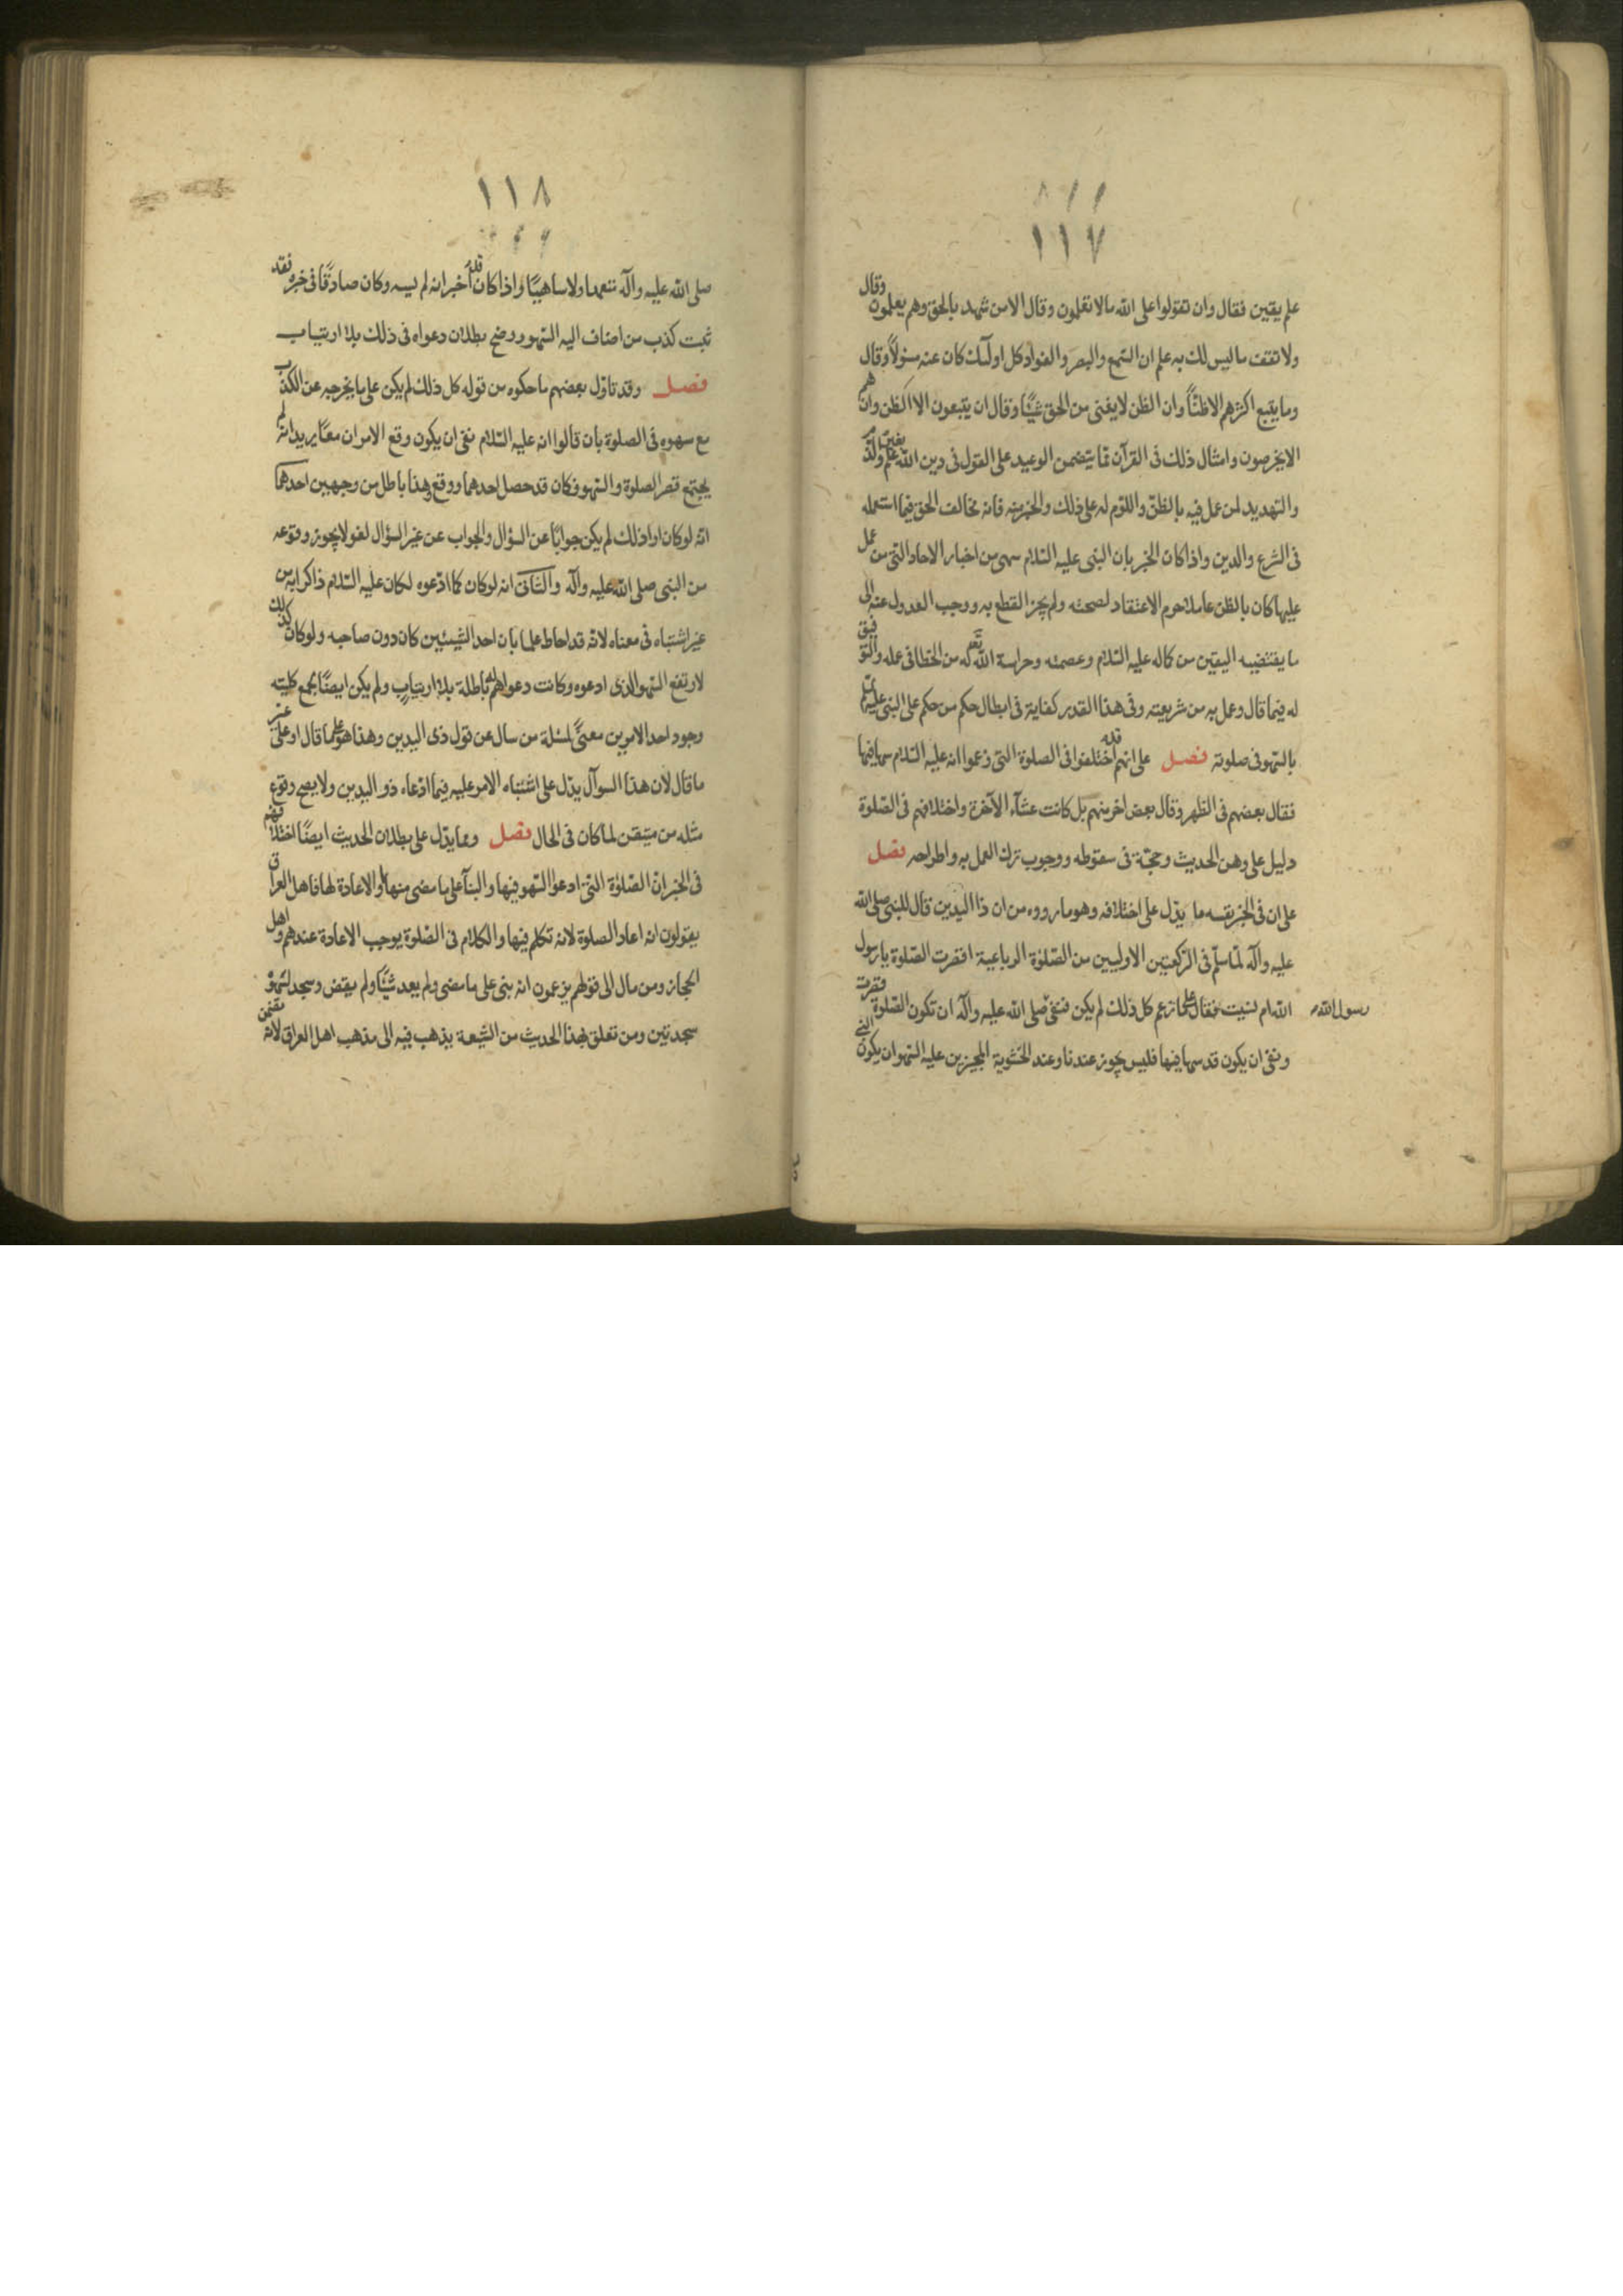 ٨١١
١١٧
علم يقين فقال وان تقولوا على الله مالا تعلمون وقال الا من شهد بالحق وهم يعلمون وقال
ولا تقف ما ليس لك به علم ان السمع والبصر والفؤاد كل اولئك كان عنه مسئولاً وقال
وما يتبع اكثرهم الا ظناً وان الظن لا يغنى من الحق شيئًا وقال ان يتبعون الا الظن وان هم
الا يخرصون وامثال ذلك فى القرآن مما يتضمن الوعيد على القول فى دين الله بغير علم والذم
والتهديد لمن عمل فيه بالظن واللوم له على ذلك والخبر عنه فانه مخالف الحق فيما استعمله
فى الشرع والدين واذا كان الخبر بان النبى عليه السلام سهى من اخبار الاحاد التى من عمل
عليها كان بالظن عاملا حرم الاعتقاد لصحته ولم يجز القطع به ووجب العدول عنه الى
ما يقتضيه اليقين من كماله عليه السلام وعصمته وحراسة الله تعالى له من الخطا فى عمله والتوفيق
له فيما قال وعمل به من شريعته وفى هذا القدر كفاية فى ابطال حكم من حكم على النبى عليه السلم
بالسهو فى صلوته فصل على انهم قد اختلفوا فى الصلوة التى زعموا انه عليه السلام سها فيها
فقال بعضهم فى الظهر وقال بعض اخر منهم بل كانت عشآء الآخرة واختلافهم فى الصلوة
دليل على وهن الحديث وحجة فى سقوطه ووجوب ترك العمل به واطراحه فصل
على ان فى الخبر نفسه ما يدل على اختلافه وهو ما رووه من ان ذا اليدين قال للنبى صلى الله
عليه وآله لما سلم فى الركعتين الاوليين من الصلوة الرباعية اقصرت الصلوة يا رسول
الله ام نسيت فقال على ما زعم كل ذلك لم يكن فنفى صلى الله عليه وآله ان تكون الصلوة قصرت
رسول الله
ونفى ان يكون قد سها فيها فليس يجوز عندنا وعند الحشوية المجيزين عليه السهو ان يكون النبى
١١٨
صلى الله عليه وآله متعمدا ولا ساهيًا واذا كان قد اخبر انه لم يسه وكان صادقًا فى خبره فقد
ثبت كذب من اضاف اليه السهو ووضح بطلان دعواه فى ذلك بلا ارتياب
فصل وقد تاول بعضهم ما حكوه من قوله كل ذلك لم يكن على ما يخرجه عن الكذب
مع سهوه فى الصلوة بان قالوا انه عليه السلام نفى ان يكون وقع الامران معًا يريد انه لم
يجتمع قصر الصلوة والسهو فكان قد حصل احدهما ووقع وهذا باطل من وجهين احدهما
انه لو كان اراد ذلك لم يكن جوابًا عن السؤال والجواب عن غير السؤال لغو لا يجوز وقوعه
من النبى صلى الله عليه وآله والثانى انه لو كان كما ادعوه لكان عليه السلام ذاكرا به من
غير اشتباه فى معناه لانه قد احاط علما بان احد الشيئين كان دون صاحبه ولو كان كذلك
لارتفع السهو الذى ادعوه وكانت دعواهم له باطلة بلا ارتياب ولم يكن ايضًا يجمع كليته
وجود احد الامرين معنى لمسئلة من سال عن قول ذى اليدين وهذا هو على ما قال او على غير
ما قال لان هذا السوآل يدل على اشتباه الامر عليه فيما ادعاه ذو اليدين ولا يصح وقوع
مثله من متيقن لما كان فى الحال فصل ومما يدل على بطلان الحديث ايضًا اختلافهم
فى الخبر ان الصلوة التى ادعوا السهو فيها والبنآء على ما مضى منها او الاعادة لها فاهل العراق
يقولون انه اعاد الصلوة لانه تكلم فيها والكلام فى الصلوة يوجب الاعادة عندهم واهل
الحجاز ومن مال الى قولهم يزعمون انه بنى على ما مضى ولم يعد شيئًا ولم يقض وسجد لسهوه
سجدتين ومن تعلق بهذا الحديث من الشيعة يذهب فيه الى مذهب اهل العراق لانه تضمن